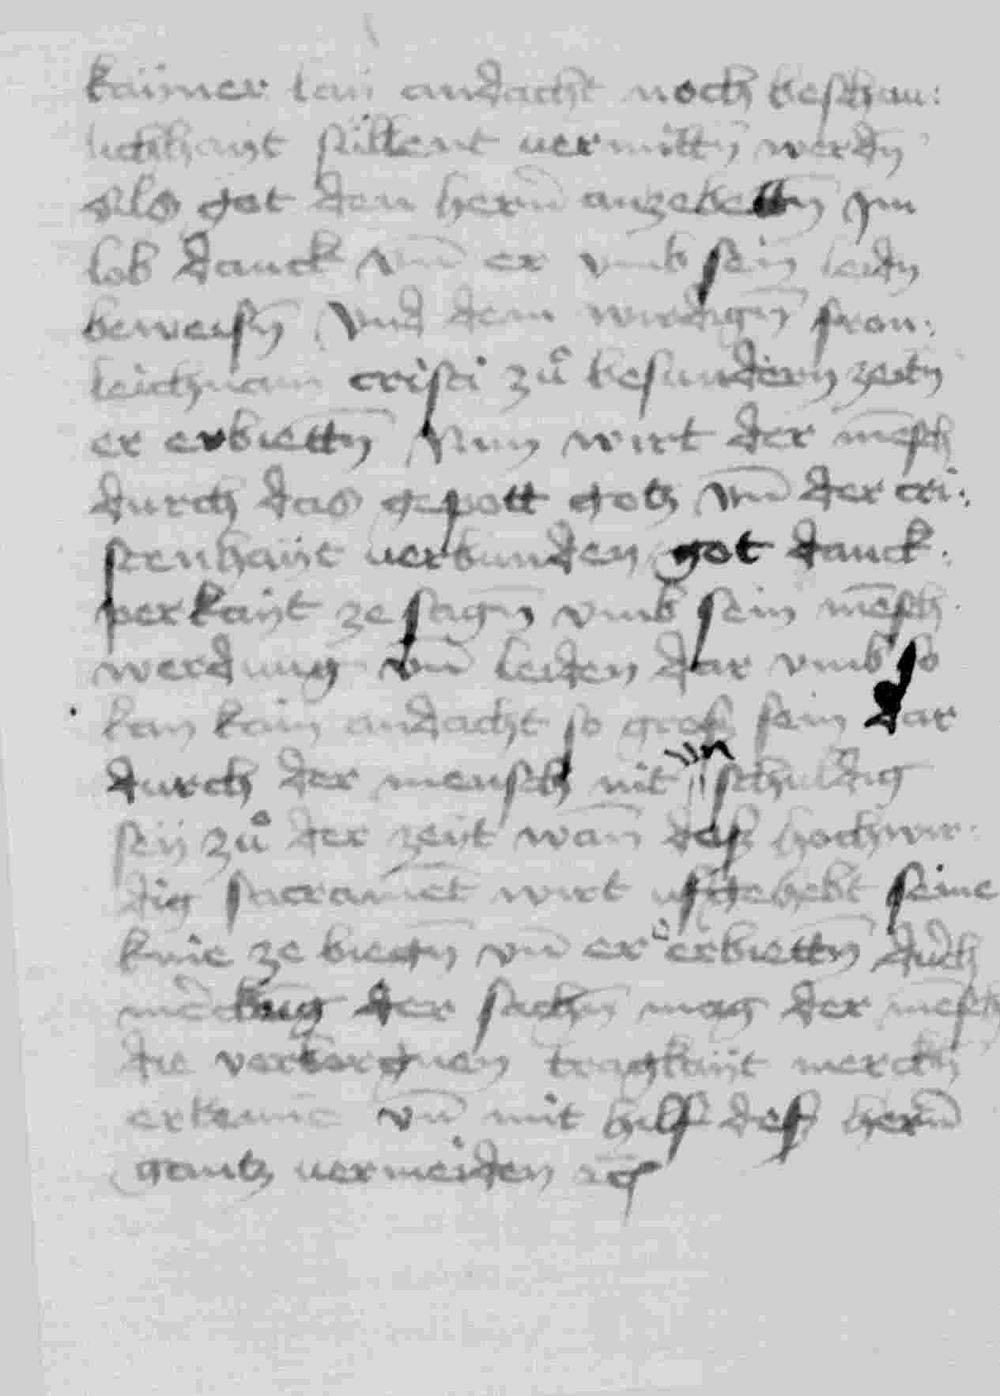 kainer lai andacht noch beschau:
lichhait sillent vermitten werdn
Als got den hern̄ anzebetten Im
lob danck vn̄ er vmb sein leidn
beweisn̄ Vnd dem wirdign̄ fron:
leichnam cristi zů besundern zeitn
er erbiettn̄ Nun wirt der mēsch
durch das gepott gotz vn̄ der cri:
stenhait verbunden got danck:
perkait ze sagn̄ vmb sein mēsch
werdung vn̄ leiden dar vmb so
kan kain andacht so gros sein dar
durch der mensch nit vn schuldig
seÿ zů der zeit wan̄ deß hochwir
dig sacramēt wirt ufgehebt seine
knie ze biegn̄ vn̄ er erbiettn̄ durch
der sachn̄ mag der mēsch
die verborgnen tragkait merckn
erkenne vn̄ mit hilf deß hern̄
gantz vermeiden